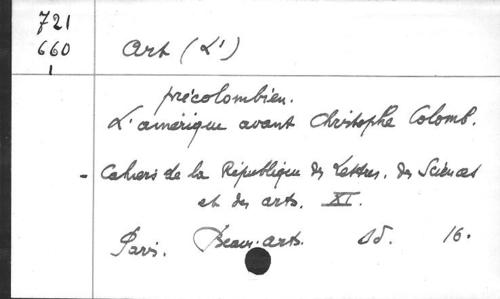 721
660
1
Art (L')
précolombien.
L'amérique avant Christophe Colomb.
- Cahiers de la République des Lettres, des Sciences
et des arts. XI.
Paris. Beaux-arts. sd. 16.